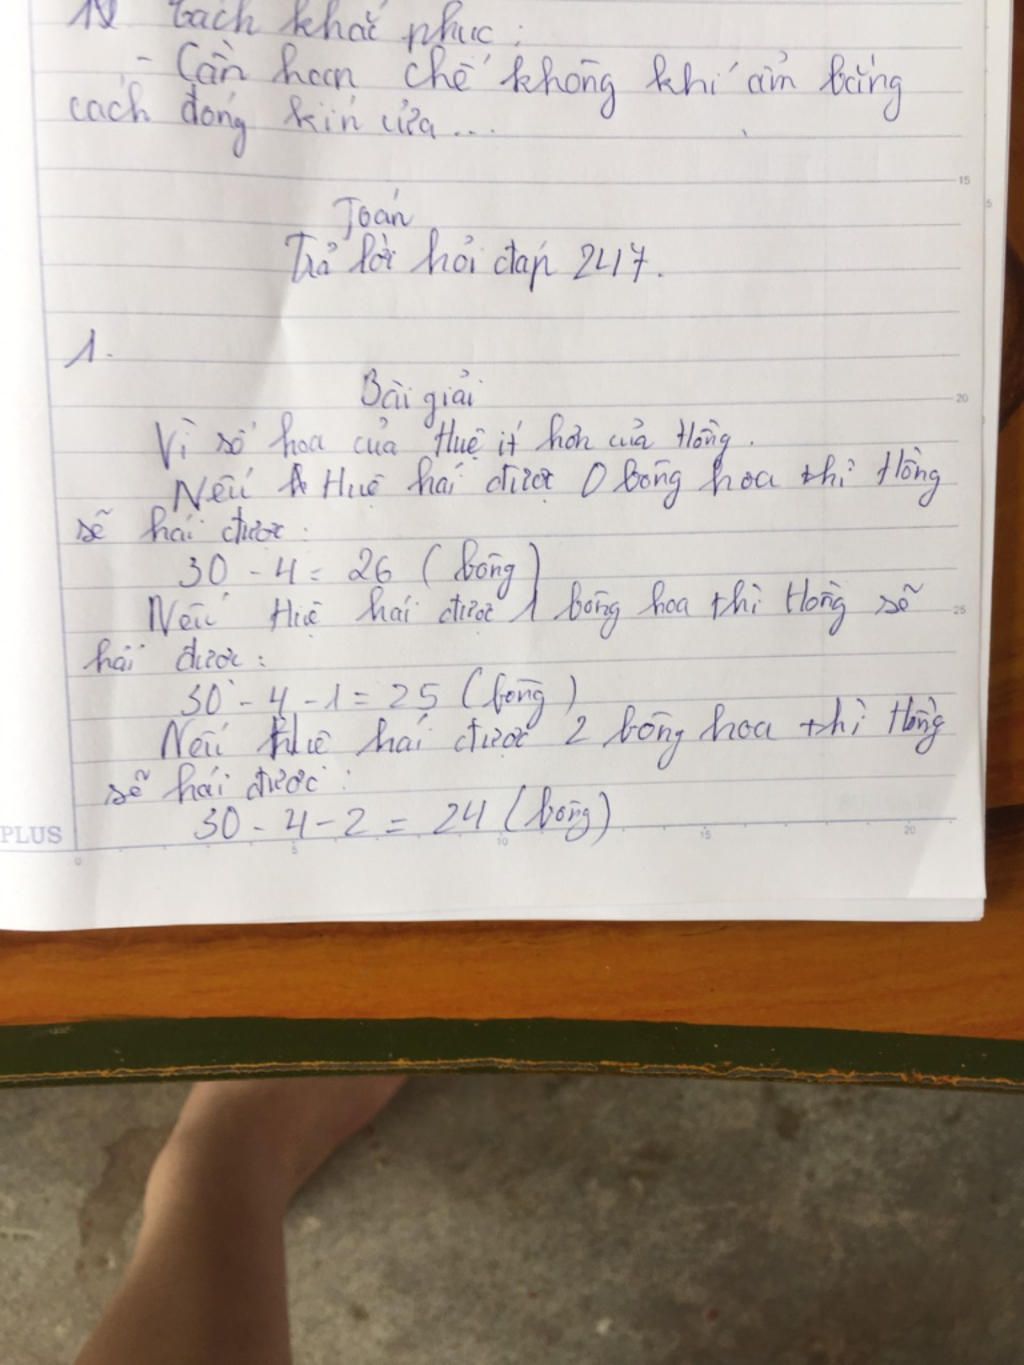 IV Cách khắc phục:
- Cần hạn chế không khí ẩm bằng
cách đóng kín cửa...
15
5
Toán
Trả lời hỏi đáp 247.
1.
Bài giải
20
Vì số hoa của Huệ ít hơn của Hồng.
Nếu Huệ hái được 0 bông hoa thì Hồng
sẽ hái được:
30 - 4 = 26 (bông)
Nếu Huệ hái được 1 bông hoa thì Hồng sẽ
25
hái được:
30 - 4 - 1 = 25 (bông)
Nếu Huệ hái được 2 bông hoa thì Hồng
sẽ hái được:
30 - 4 - 2 = 24 (bông)
PLUS
0 5 10 15 20